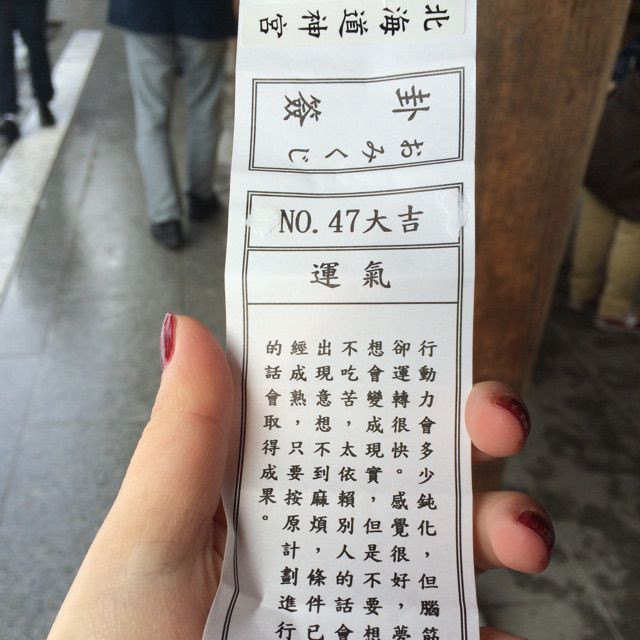 北海道神宮
卦簽
おみくじ
NO.47大吉
運氣
行動力會多少鈍化，但腦筋
卻運轉很快。感覺很好，夢
想會變成現實，但是不要想
不吃苦，太依賴別人的話會
出現意想不到麻煩，條件已
經成熟，只要按原計劃進行
的話會取得成果。